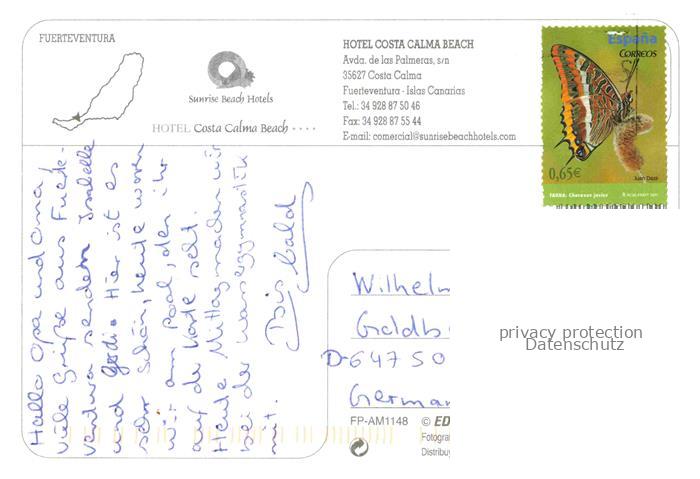 FUERTEVENTURA
Sunrise Beach Hotels
HOTEL Costa Calma Beach ····
HOTEL COSTA CALMA BEACH
Avda. de las Palmeras, s/n
35627 Costa Calma
Fuerteventura - Islas Canarias
Tel.: 34 928 87 50 46
Fax: 34 928 87 55 44
E-mail: comercial@sunrisebeachhotels.com
España
CORREOS
0,65€
Juan Doze
FAUNA: Charaxes jasius
Hallo Opa und Oma,
viele Grüße aus Fuerte-
ventura senden Isabelle
und Hier ist es
sehr schön, heute waren
wir am Pool, den ihr
auf der Karte seht.
Heute Mittag machen wir
bei der Wassergymnastik
mit.
Bis bald
Wilhelm
Goldb
D-64750
German
privacy protection
Datenschutz
FP-AM1148 © ED
Fotograf
Distribuy